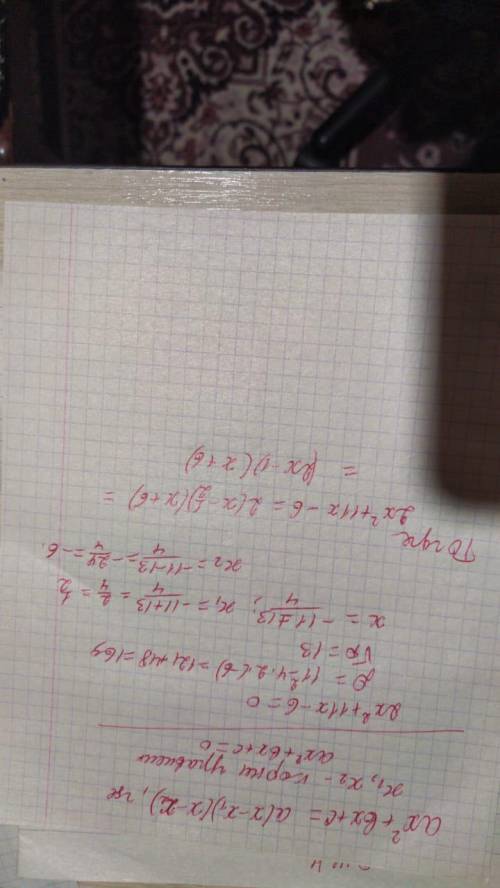 ax²+bx+c = a(x-x₁)(x-x₂), где
x₁, x₂ - корни уравнения
ax²+bx+c=0
2x²+11x-6=0
D = 11²-4·2·(-6) = 121+48=169
√D = 13
x = -11±13/4; x₁ = -11+13/4 = 2/4 = 1/2
x₂ = -11-13/4 = -24/4 = -6.
Тогда
2x²+11x-6 = 2(x-1/2)(x+6) =
= (2x-1)(x+6)